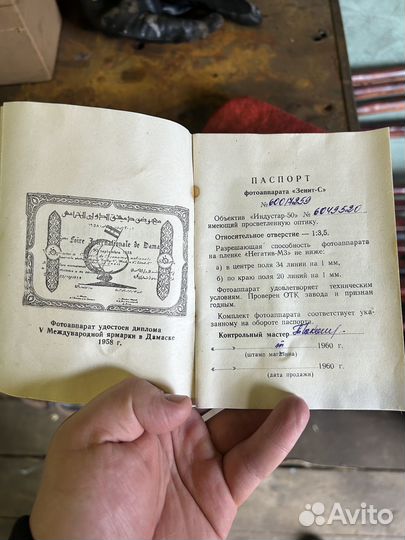 Foire Internationale de Damas
Фотоаппарат удостоен диплома
V Международной ярмарки в Дамаске
1958 г.
ПАСПОРТ
фотоаппарата «Зенит-С»
№ 6007259
Объектив «Индустар-50» № 6049520
имеющий просветленную оптику.
Относительное отверстие — 1:3,5.
Разрешающая способность фотоаппарата
на пленке «Негатив-МЗ» не ниже:
а) в центре поля 34 линии на 1 мм,
б) по краю поля 20 линий на 1 мм.
Фотоаппарат удовлетворяет техническим
условиям. Проверен ОТК завода и признан
годным.
Комплект фотоаппарата соответствует ука-
занному на обороте паспорта.
Контрольный мастер
« » 1960 г.
(штамп магазина)
« » 1960 г.
(дата продажи)
Avito